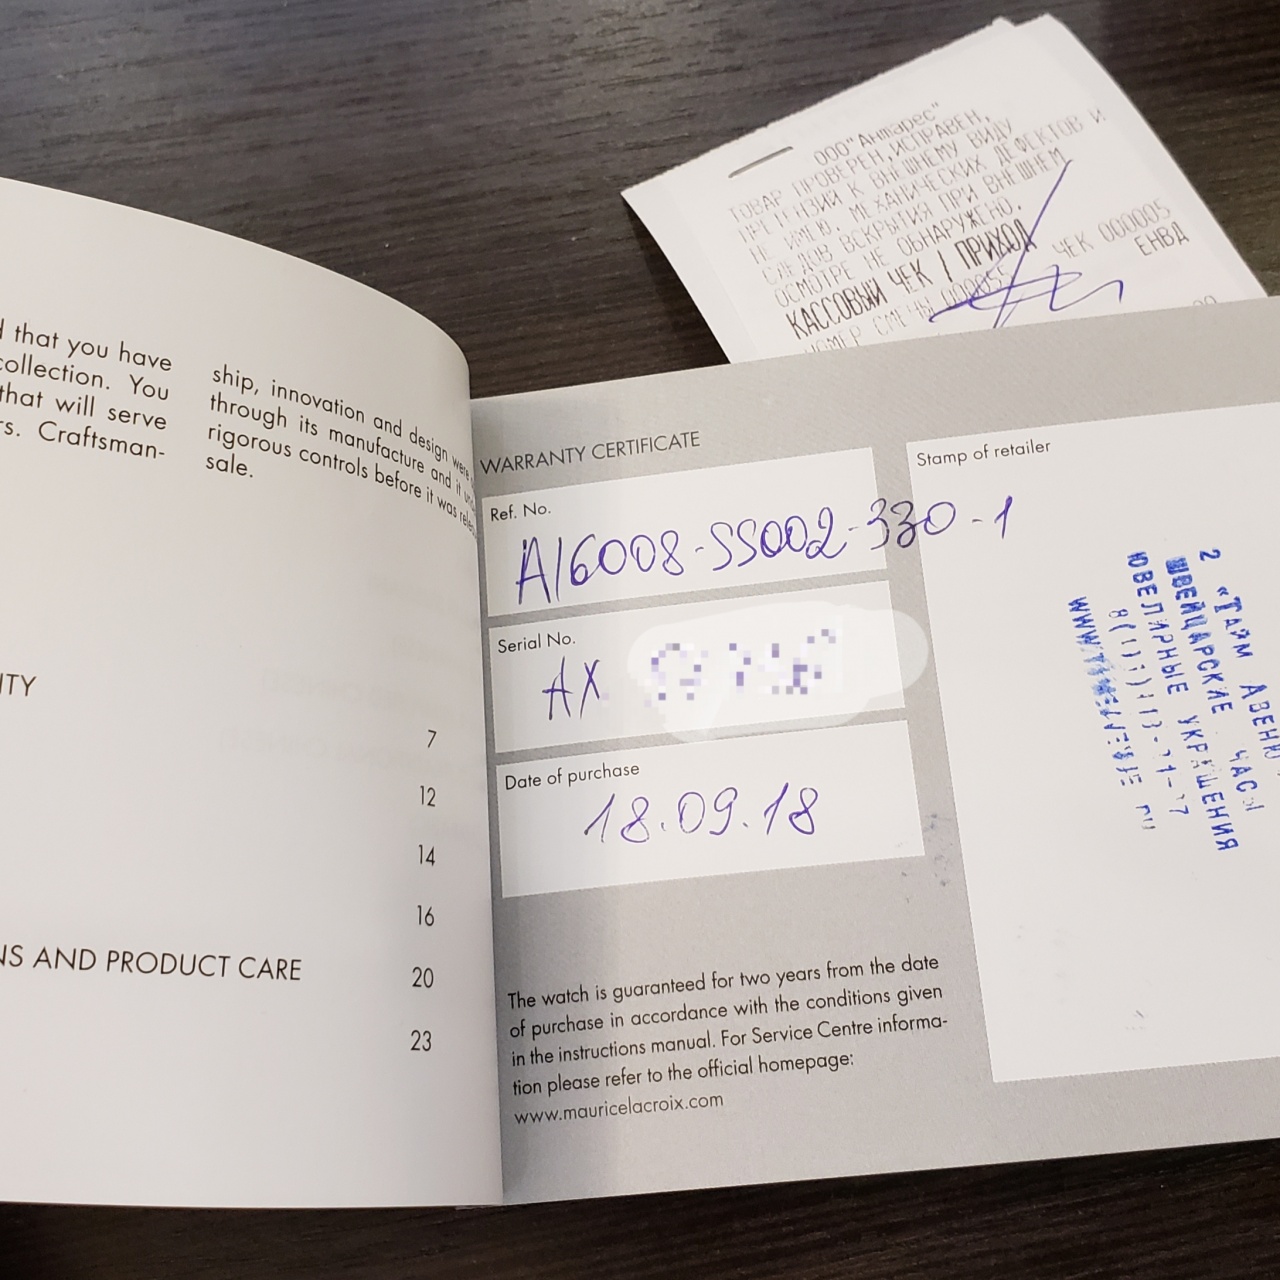 ООО"Антарес"
ТОВАР ПРОВЕРЕН,ИСПРАВЕН,
ПРЕТЕНЗИЙ К ВНЕШНЕМУ ВИДУ
НЕ ИМЕЮ. МЕХАНИЧЕСКИХ ДЕФЕКТОВ И
СЛЕДОВ ВСКРЫТИЯ ПРИ ВНЕШНЕМ
ОСМОТРЕ НЕ ОБНАРУЖЕНО.
КАССОВЫЙ ЧЕК / ПРИХОД
НОМЕР СМЕНЫ 000055 ЧЕК 000005
ЕНВД
that you have
collection. You
that will serve
Craftsman-
ship, innovation and design were
through its manufacture and it
rigorous controls before it was
sale.
7
12
14
16
AND PRODUCT CARE 20
23
WARRANTY CERTIFICATE
Ref. No.
AI6008-SS002-330-1
Serial No.
AX
Date of purchase
18.09.18
The watch is guaranteed for two years from the date
of purchase in accordance with the conditions given
in the instructions manual. For Service Centre informa-
tion please refer to the official homepage:
www.mauricelacroix.com
Stamp of retailer
2 «ТАЙМ АВЕНЮ
ШВЕЙЦАРСКИЕ ЧАСЫ
ЮВЕЛИРНЫЕ УКРАШЕНИЯ